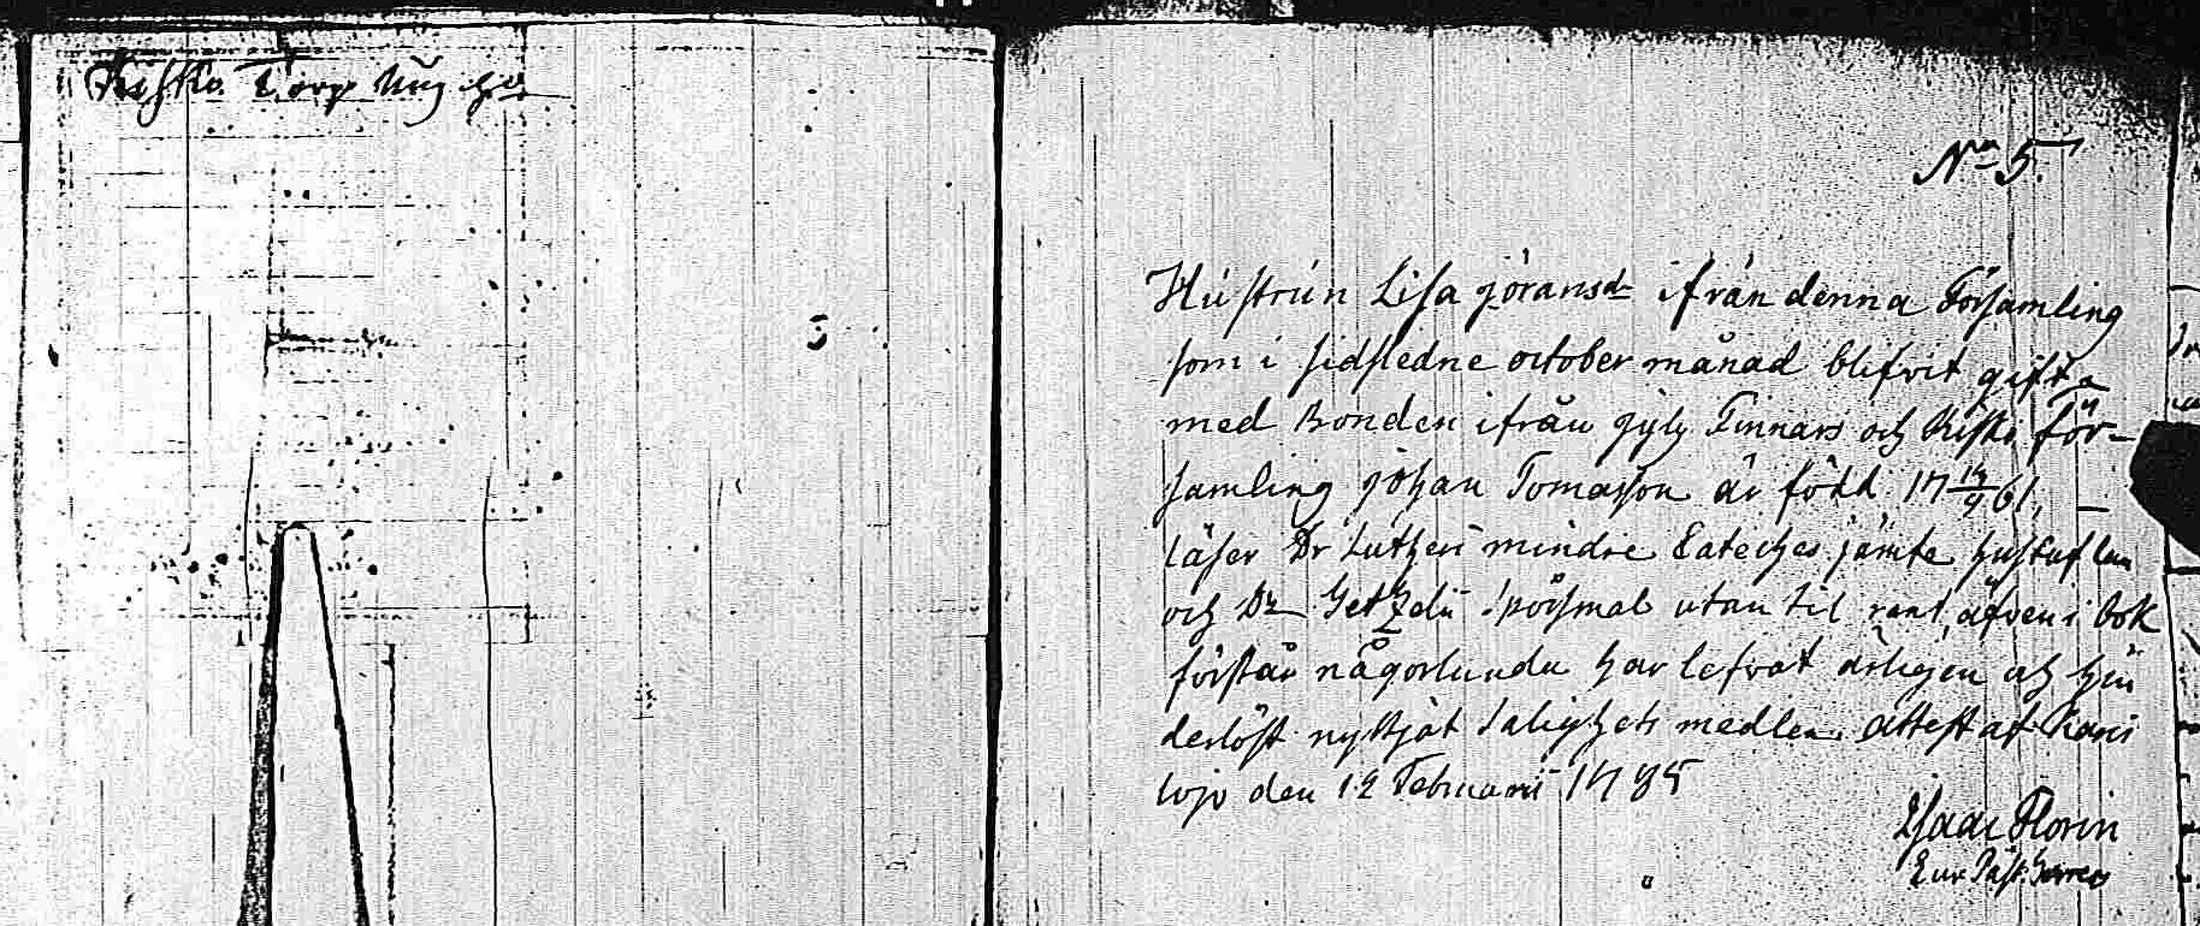 Kisko
No 5.
Hustrun Lisa Göransdr ifrån denna Församling
som i sidstledne october månad blifvit gift
med Bonden ifrån Finnars och Kisko För-
samling Johan Tomasson är född 17 14/9 61,
läser Dr Lutheri mindre Cateches jämte hustaflan
och Dr Getzelii spörsmål utan til rent, äfven i bok
förstår någorlunda har lefvat ärligen och hin
derlöst nyttjat salighets medlen attest af Karis
lojo den 12 Februarii 1785
Isaac Florin